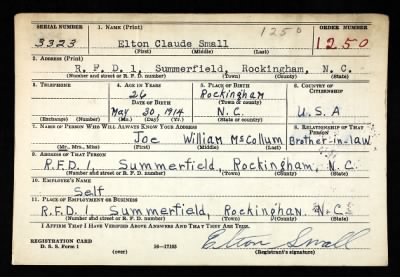 SERIAL NUMBER 1. NAME (Print) 1250 ORDER NUMBER
3323 Elton Claude Small 1250
(First) (Middle) (Last)
2. ADDRESS (Print)
R.F.D. 1, Summerfield, Rockingham, N. C.
(Number and street or R. F. D. number) (Town) (County) (State)
3. TELEPHONE 4. AGE IN YEARS 5. PLACE OF BIRTH 6. COUNTRY OF CITIZENSHIP
26 Rockingham
DATE OF BIRTH (Town or county)
May 30, 1914 N.C. U.S.A
(Exchange) (Number) (Mo.) (Day) (Yr.) (State or country)
7. NAME OF PERSON WHO WILL ALWAYS KNOW YOUR ADDRESS 8. RELATIONSHIP OF THAT PERSON
Joe William McCollum Brother-in-law
(Mr., Mrs., Miss) (First) (Middle) (Last)
9. ADDRESS OF THAT PERSON
R.F.D.1, Summerfield, Rockingham, N.C.
(Number and street or R. F. D. number) (Town) (County) (State)
10. EMPLOYER'S NAME
Self
11. PLACE OF EMPLOYMENT OR BUSINESS
R.F.D.1, Summerfield, Rockingham. N.C.
(Number and street or R. F. D. number) (Town) (County) (State)
I AFFIRM THAT I HAVE VERIFIED ABOVE ANSWERS AND THAT THEY ARE TRUE.
REGISTRATION CARD
D. S. S. Form 1 (over) 16-17105 Elton Small
(Registrant's signature)